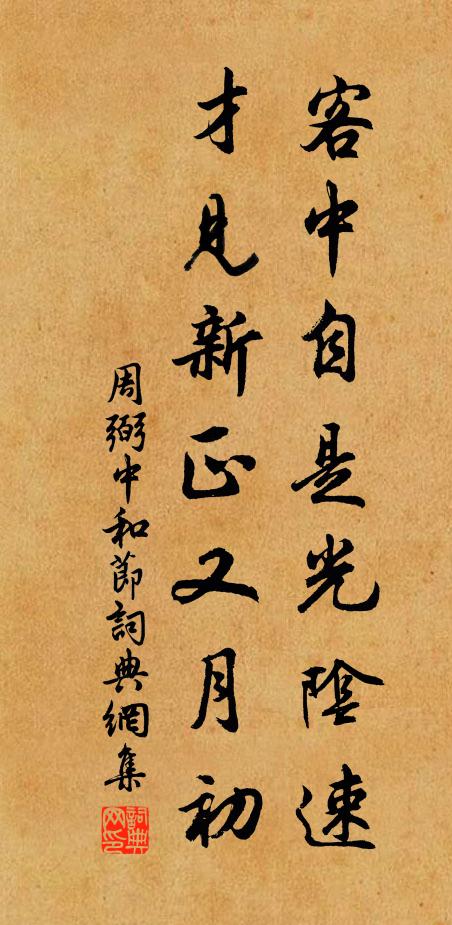 客中自是光陰速
才見新正又月初
周弼中和節詞典網集
詞典網印